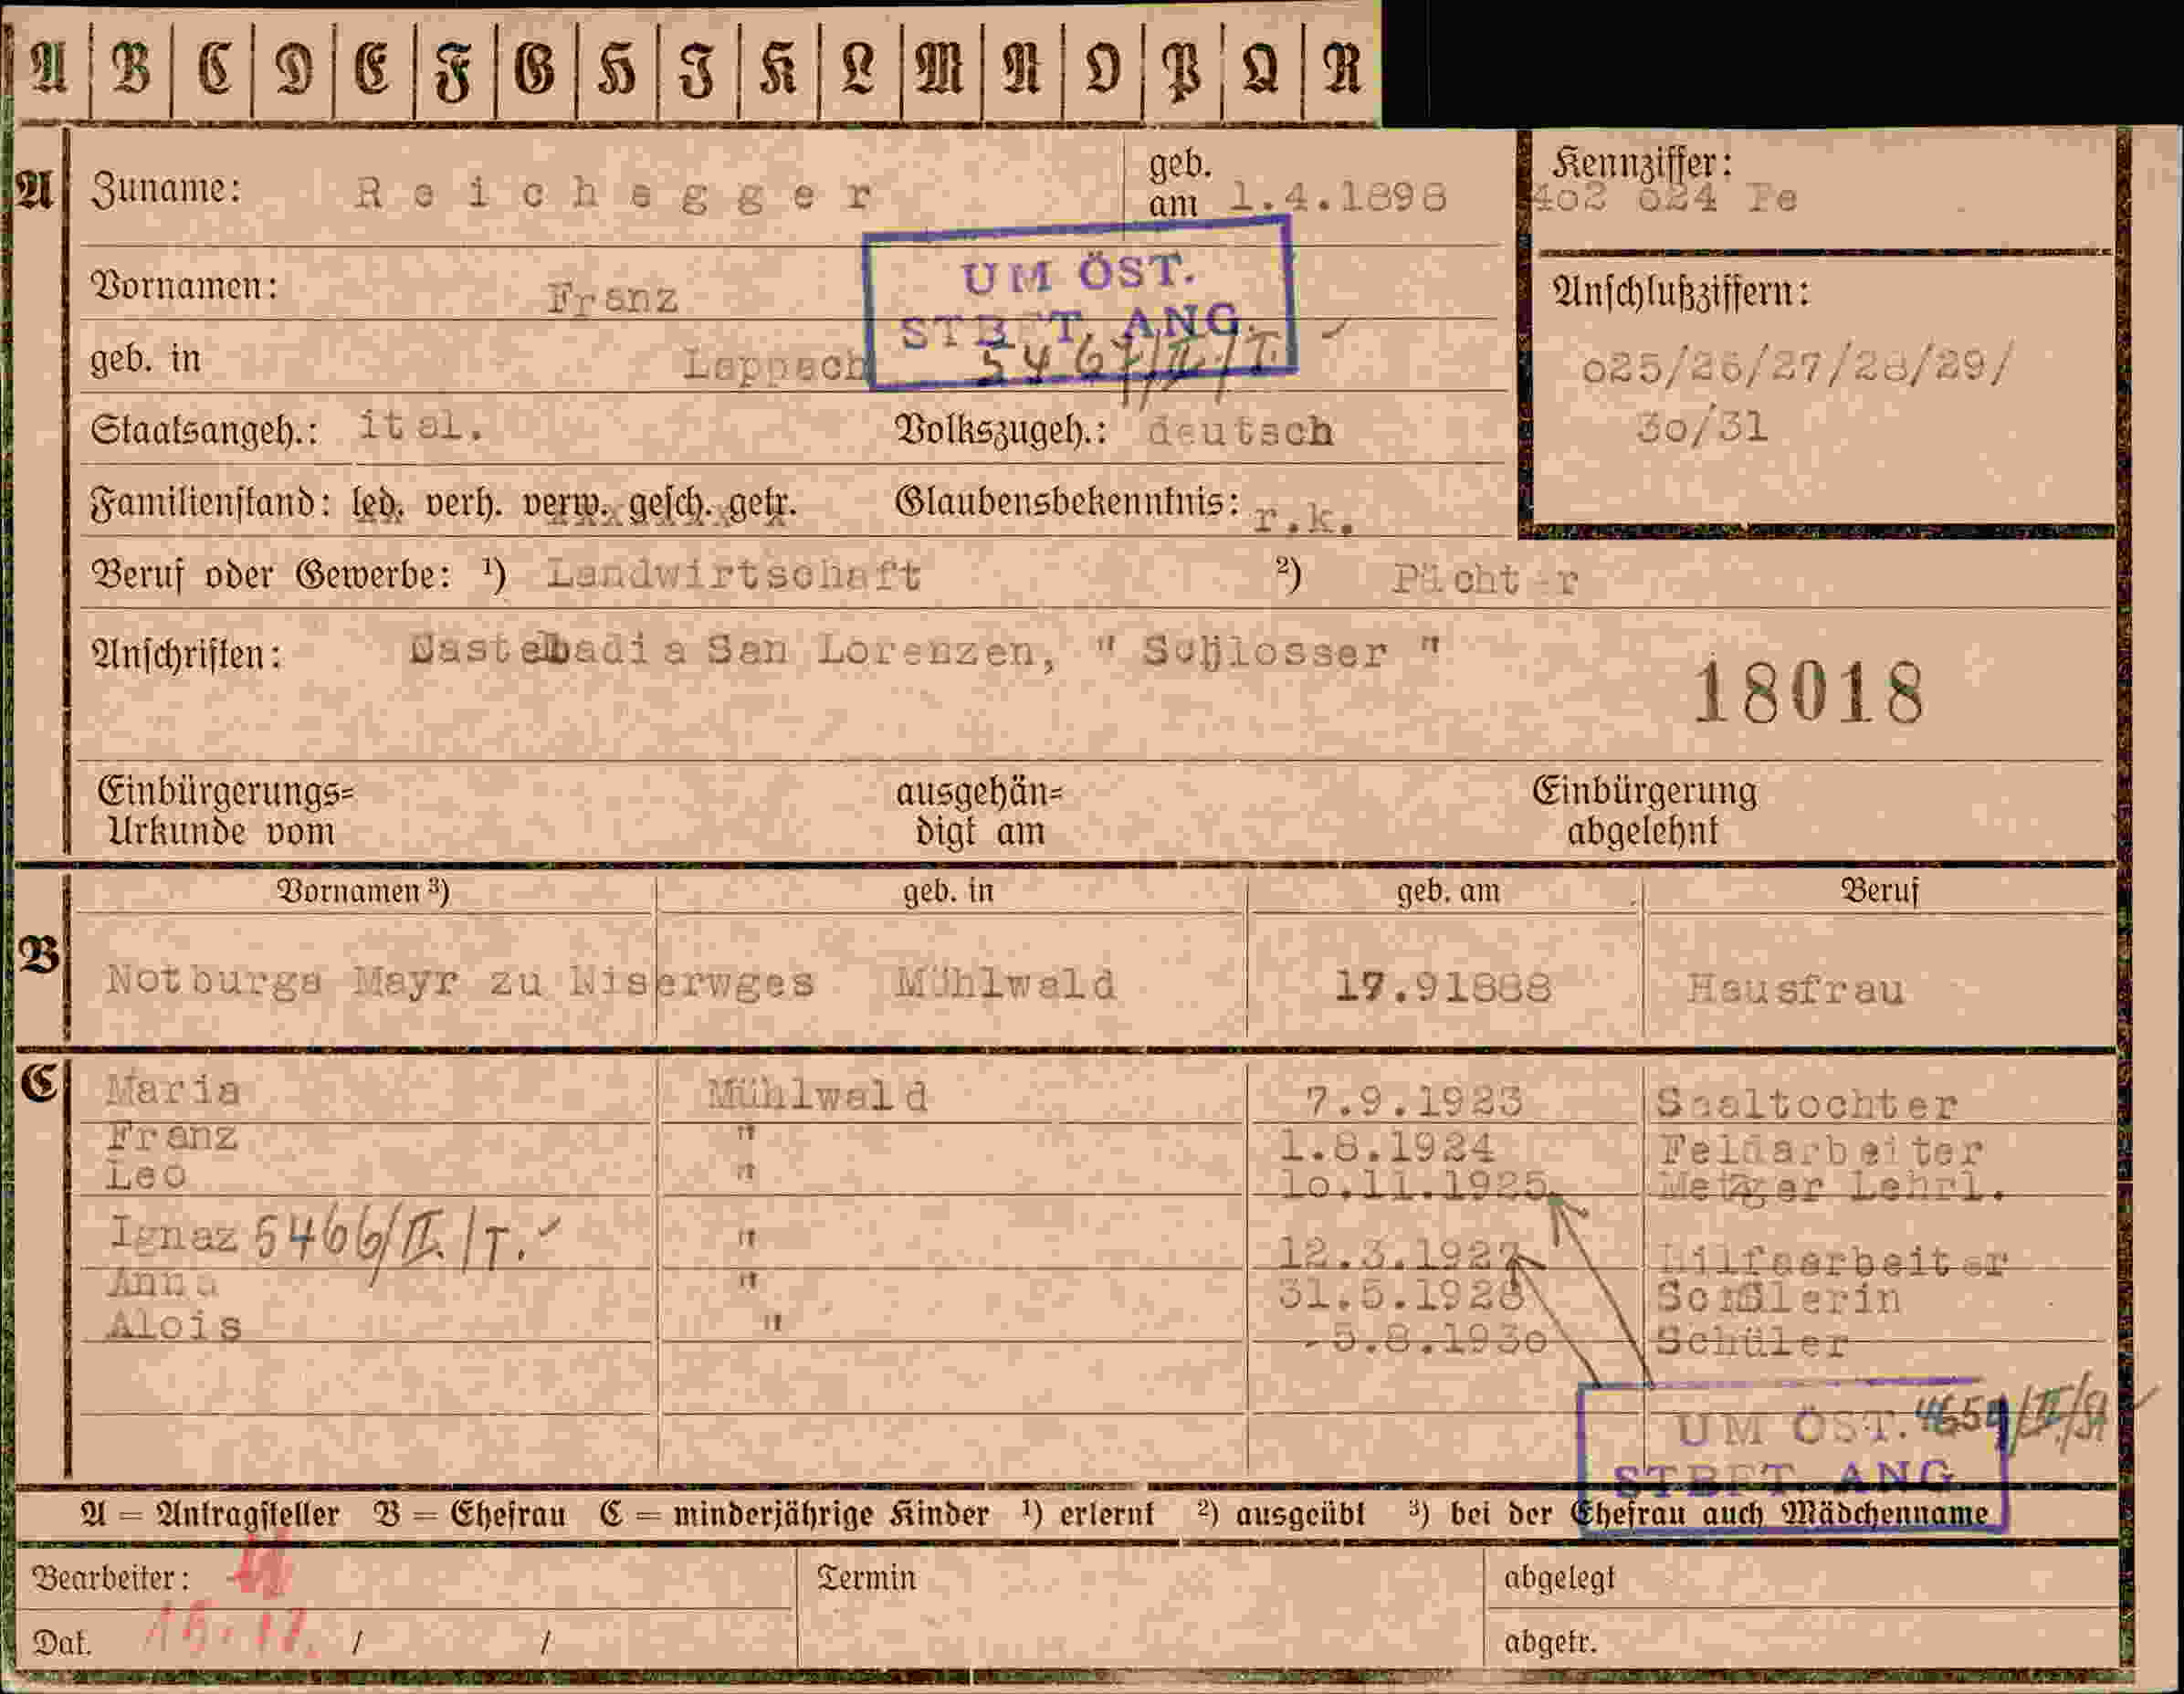 A B C D E F G H I K L M N O P Q R
A Zuname: Reichegger geb. am 1.4.1898
Kennziffer: 4o2 o24 Pe
Vornamen: Franz
UM ÖST.
STBFT. ANG.
5467/II./T. ✓
geb. in Lappach
Anschlußziffern:
o25/26/27/28/29/
3o/31
Staatsangeh.: ital. Volkszugeh.: deutsch
Familienstand: led. verh. verw. gesch. getr. Glaubensbekenntnis: r.k.
Beruf oder Gewerbe: ¹) Landwirtschaft ²) Pächter
Anschriften: Castelbadia San Lorenzen, " Schlosser "
18018
Einbürgerungs=
Urkunde vom
ausgehän=
digt am
Einbürgerung
abgelehnt
Vornamen ³) geb. in geb. am Beruf
B Notburga Mayr zu Mühlwald 19.91888 Hausfrau
C Maria Mühlwald 7.9.1923 Saaltochter
Franz " 1.8.1924 Feldarbeiter
Leo " 1o.11.1925 Metzger Lehrl.
Ignaz 5466/II./T. ✓ " 12.3.1927 Hilfsarbeiter
Anna " 31.5.1928 Schülerin
Alois " 5.8.193o Schüler
UM ÖST. 4654/II/
STBFT. ANG
A = Antragsteller B = Ehefrau C = minderjährige Kinder ¹) erlernt ²) ausgeübt ³) bei der Ehefrau auch Mädchenname
Bearbeiter: Termin abgelegt
Dat. 15.12. / / abgetr.